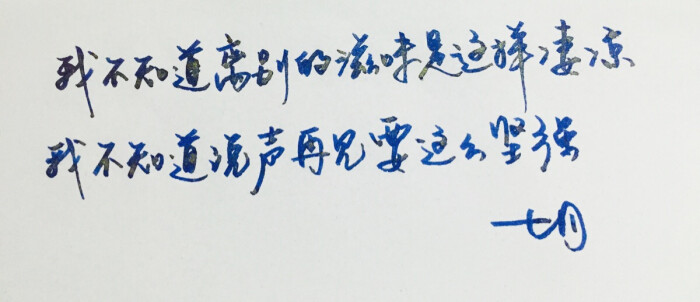 我不知道离别的滋味是这样凄凉
我不知道说声再见要这么坚强
七月